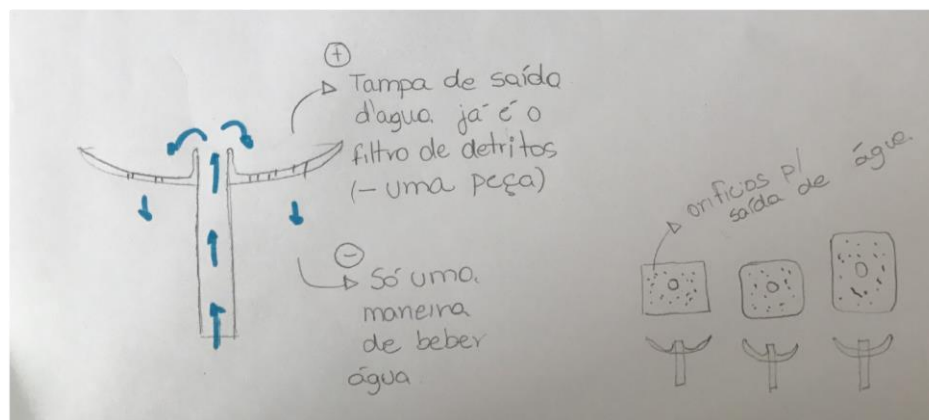 +
Tampa de saída
d'agua já é o
filtro de detritos
(- uma peça)
-
Só uma
maneira
de beber
água
orifícios p/
saída de água